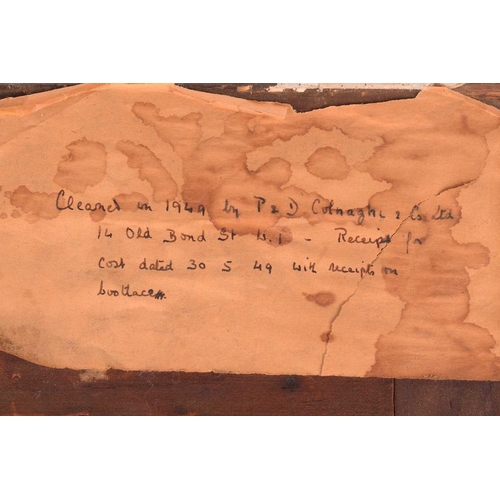 Cleaned in 1949 by P & D Colnaghi & Co Ltd
14 Old Bond St W.1 - Receipt for
cost dated 30 5 49 with receipts on
bootlace.